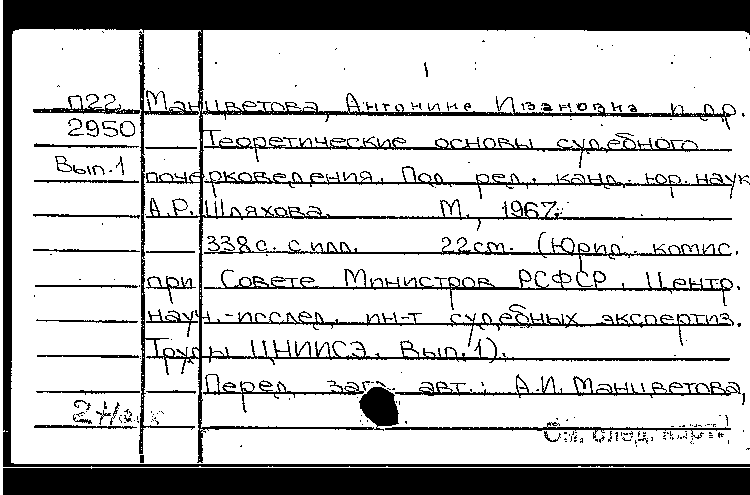 1
п22 Манцветова, Антонина Ивановна и др.
2950 Теоретические основы судебного
Вып.1 почерковедения. Под ред. канд. юр. наук
А.Р. Шляхова. М., 1967.
338с. с илл. 22см. (Юрид. комис.
при Совете Министров РСФСР. Центр.
науч.-исслед. ин-т судебных экспертиз.
Труды ЦНИИСЭ. Вып.1).
Перед загл. авт.: А.И. Манцветова,
См. след. карт.